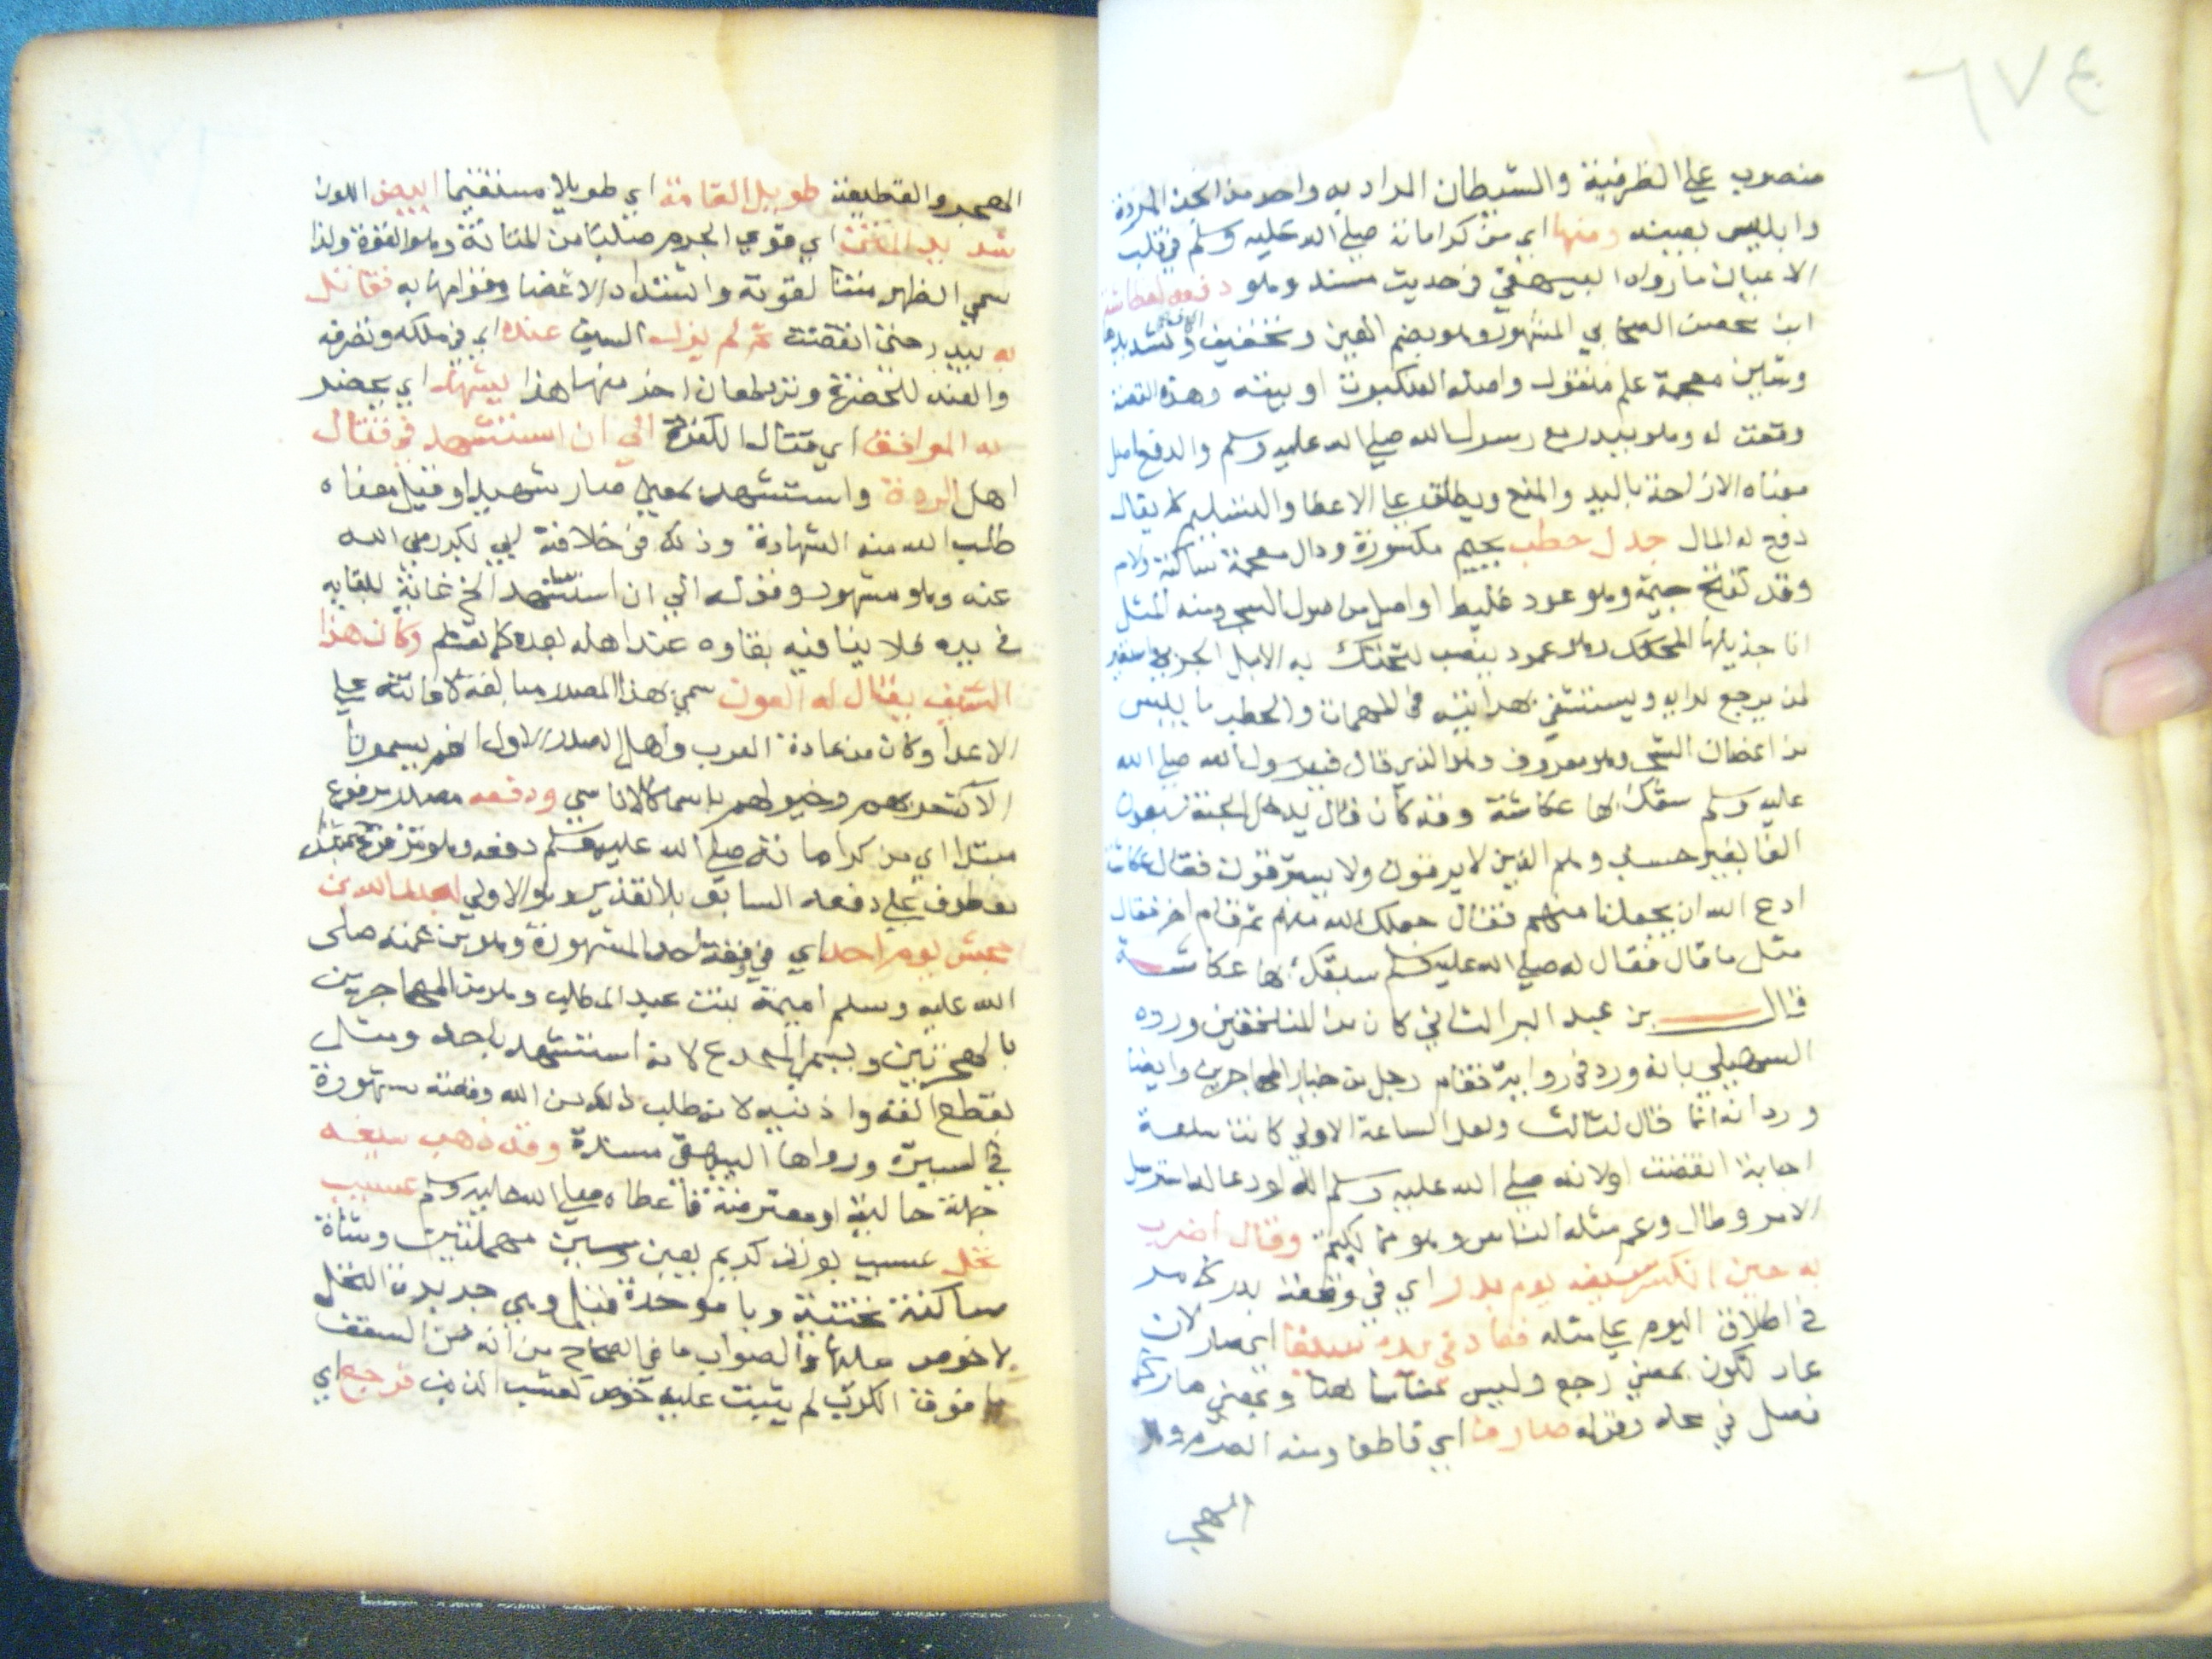 ٦٧٤
منصوب علي الظرفية والشيطان المراد به واحد من الجن المردة
وابليس بعينه ومنها اي من كراماته صلي الله عليه وسلم في قلب
الاعيان ما رواه البيهقي في حديث مسند وهو دفعه لعكاشة
ابن محصن الصحابي المشهور وهو بضم العين وتخفيف الكاف وتشديدها
وشين معجمة علم منقول واصله العنكبوت او بيته وهذه القصة
وقعت له وهو ببدر مع رسول الله صلي الله عليه وسلم والدفع اصل
معناه الازاحة باليد والمنع ويطلق علي الاعطا والتسليم كما يقال
دفع له المال جذل حطب بجيم مكسورة وذال معجمة ساكنة ولام
وقد تفتح جيمه وهو عود غليظ او اصل من اصول الشجر ومنه المثل
انا جذيلها المحكك وهو عمود ينصب لتحتك به الابل الجربة واستعير
لمن يرجع لرايه ويستشفي بهدايته في المهمات والحطب ما يبس
من اغصان الشجر وهو معروف وهو الذي قال فيه رسول الله صلي الله
عليه وسلم سبقك بها عكاشة وقد كان قال يدخل الجنة سبعون
الفا بغير حساب وهم الذين لا يرقون ولا يسترقون فقال عكاشة
ادع الله ان يجعلنا منهم فقال جعلك الله منهم ثم قام اخر فقال
مثل ما قال فقال له صلي الله عليه وسلم سبقك بها عكاشـة
قال بن عبد البر الثاني كان من المنافقين ورده
السهيلي بانه ورد في رواية فقام رجل من خيار المهاجرين وايضا
ورد انه انما قال لثالث ولعل الساعة الاولي كانت ساعة
اجابة انقضت اولانه صلي الله عليه وسلم لو دعا له استرسل
الامر وطال وعم مثله الناس وقال اضرب
به حين انكسر سيفه يوم بدر اي في وقعة بدر كما مر
في اطلاق اليوم علي مثله فعاد في يده سيفا اي صار لان
عاد تكون بمعني رجع وليس مناسبا هنا وبمعني صار كما
فصل في محله وقوله صارما اي قاطعا ومنه الصرم وهو
الهجر
الهجر والقطيعة طويل القامة اي طويلا مستقيما ابيض اللون
شديد المتن اي قوي الجرم صلبا من المتانة وهو القوة ولذا
سمي الظهر متنا لقوته واشتداد الاعضا وقوامها به فقاتل
به ببدر حتى انقضت ثم لم يزل السيف عنده اي في ملكه وتصرفه
والعند للحضرة وتربطعان احد منها هذا يشهد اي يحضر
به المواقف اي قتال الكفرة الي ان استشهد في قتال
اهل الردة واستشهد بمعني صار شهيدا وقيل معناه
طلب الله منه الشهادة وذلك في خلافة ابي بكر رضي الله
عنه وهو مشهور وقوله الي ان استشهد الخ غاية لبقايه
في يده فلا ينافيه بقاوه عند اهله بعده كما تقدم وكان هذا
السيف يقال له العون سمي بهذا المصدر مبالغة لاعانته علي
الاعدا وكان من عادة العرب واهل الصدر الاول انهم يسمون
الات حربهم وخيولهم باسما كالاناسي ودفعه مصدر مرفوع
مبتدا اي من كراماته صلي الله عليه وسلم دفعه
معطوف علي دفعه السابق بلا تقدير وهو الاولي لعبد الله بن
جحش يوم احد اي في وقعة احد المشهورة وهو بن عمته صلى
الله عليه وسلم اميمة بنت عبد المطلب وهو من المهاجرين
بالهجرتين ويسمى المجدع لانه استشهد باحد ومثل
بقطع انفه واذنيه لانه طلب ذلك من الله وقصته مشهورة
في السيرة ورواها البيهقي مسندة وقد ذهب سيفه
جملة حالية او معترضة فاعطاه صلي الله عليه وسلم عسيب
نخل عسيب بوزن كريم بعين وسين مهملتين ومثناة
ساكنة تحتية وبا موحدة قيل وهي جريدة النخل
لا خوص عليها والصواب ما في الصحاح من انه من السعف
ما فوق الكرب لم ينبت عليه خوص فرجع اي